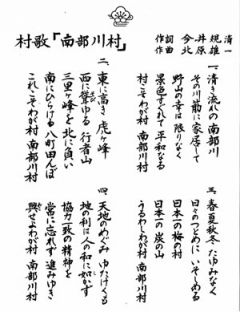 村歌「南部川村」
今井規清
北原雄一
作作
曲詞
一、清き流れの南部川
その川筋に家居して
野山の幸は限りなく
景色すぐれて平和なる
村こそわが村 南部川村
二、東に高き虎ヶ峰
西に聳ゆる行者山
三里ヶ峰を北に負い
南にひらける八町田んぼ
これこそわが村 南部川村
三、春夏秋冬たゆみなく
日々のつとめにいそしめる
日本一の梅の村
日本一の炭の山
うるわしわが村 南部川村
四、天地のめぐみゆたけくも
地の利は人の和に如かず
協力一致の精神を
常に忘れず進みゆき
興せよわが村 南部川村